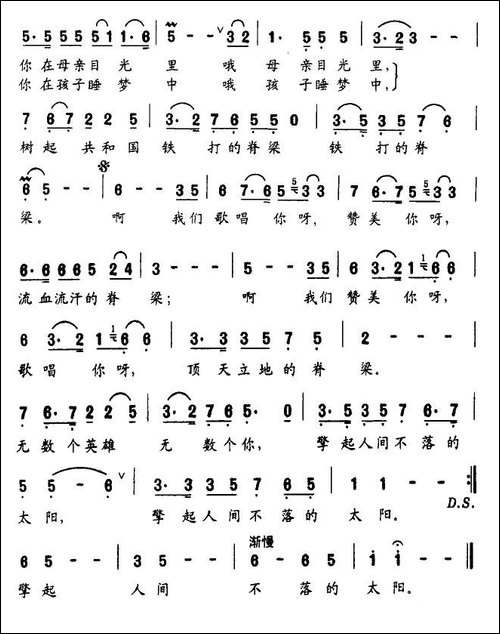 5·5 5 5 5 5 1 1·6 | 5 - - ∨ 3 2 | 1· 5 5 5 | 3·2 3 - - |
你在母亲目光里 哦母亲目光里,
你在孩子睡梦中 哦孩子睡梦中,
7 6 7 2 2 5 | 3·2 7 6 5 5 0 | 3·5 3 5 7 6 7 |
树起共和国铁打的脊梁 铁打的脊
6 5 - - | 6 - - 3 5 | 6 7·6 5 5/3 3 3 | 7 6·7 5 5/3 3 3 |
梁。 啊 我们歌唱你呀, 赞美你呀,
6·6 6 6 5 2 4 | 3 - - - | 5 - - 3 5 | 6 3·2 1 1/6 6 6 |
流血流汗的脊梁; 啊 我们赞美你呀,
6 3·2 1 1/6 6 6 | 3·3 3 5 7 5 | 2 - - - |
歌唱你呀, 顶天立地的脊梁。
7 6·7 2 2 5 | 3·2 7 6 5· 0 | 3·5 3 5 7 6·7 |
无数个英雄 无数个你, 擎起人间不落的
5 5 - 6 ∨ | 3·3 3 5 7 6 5 | 1 1 - - :||
太阳, 擎起人间不落的太阳。
D.S.
渐慢
6 5 - - | 3 5 - - | 6 - 6 5 | 1 1 - - ||
擎起人间不落的太阳。